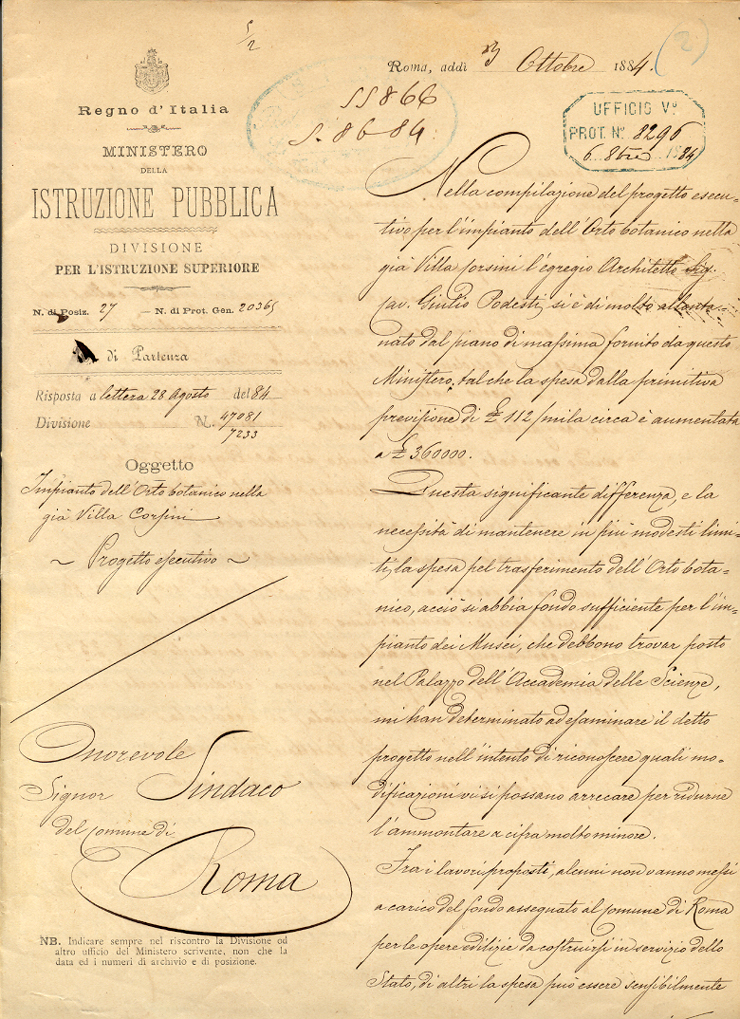 5/2
Roma, addì 3 Ottobre 1884.
(2)
55866
S. 8684
UFFICIO Vº
PROT. Nº 8296
6 8bre 1884
Regno d'Italia
MINISTERO
DELLA
ISTRUZIONE PUBBLICA
DIVISIONE
PER L'ISTRUZIONE SUPERIORE
N. di Posiz. 27 — N. di Prot. Gen. 20365
di Partenza
Risposta a lettera 28 Agosto del 84
Divisione N. 47081
7233
Oggetto
Impianto dell'Orto botanico nella
già Villa Corsini
~ Progetto esecutivo ~
Onorevole
Signor Sindaco
del Comune di
Roma
NB. Indicare sempre nel riscontro la Divisione od
altro ufficio del Ministero scrivente, non che la
data ed i numeri di archivio e di posizione.
Nella compilazione del progetto esecu-
tivo per l'impianto dell'Orto botanico nella
già Villa Corsini l'egregio Architetto Sig.
Cav. Giulio Podesti, si è di molto allonta-
nato dal piano di massima fornito da questo
Ministero, tal che la spesa dalla primitiva
previsione di £ 112/mila circa è aumentata
a £ 360000.
Questa significante differenza, e la
necessità di mantenere in più modesti limi-
ti, la spesa pel trasferimento dell'Orto bota-
nico, acciò si abbia fondo sufficiente per l'im-
pianto dei Musei, che debbono trovar posto
nel Palazzo dell'Accademia delle Scienze,
mi han determinato ad esaminare il detto
progetto nell'intento di riconoscere quali mo-
dificazioni vi si possano arrecare per ridurne
l'ammontare a cifra molto minore.
Fra i lavori proposti, alcuni non vanno messi
a carico del fondo assegnato al Comune di Roma
per le opere edilizie da costruirsi in servizio dello
Stato, di altri la spesa può essere sensibilmente